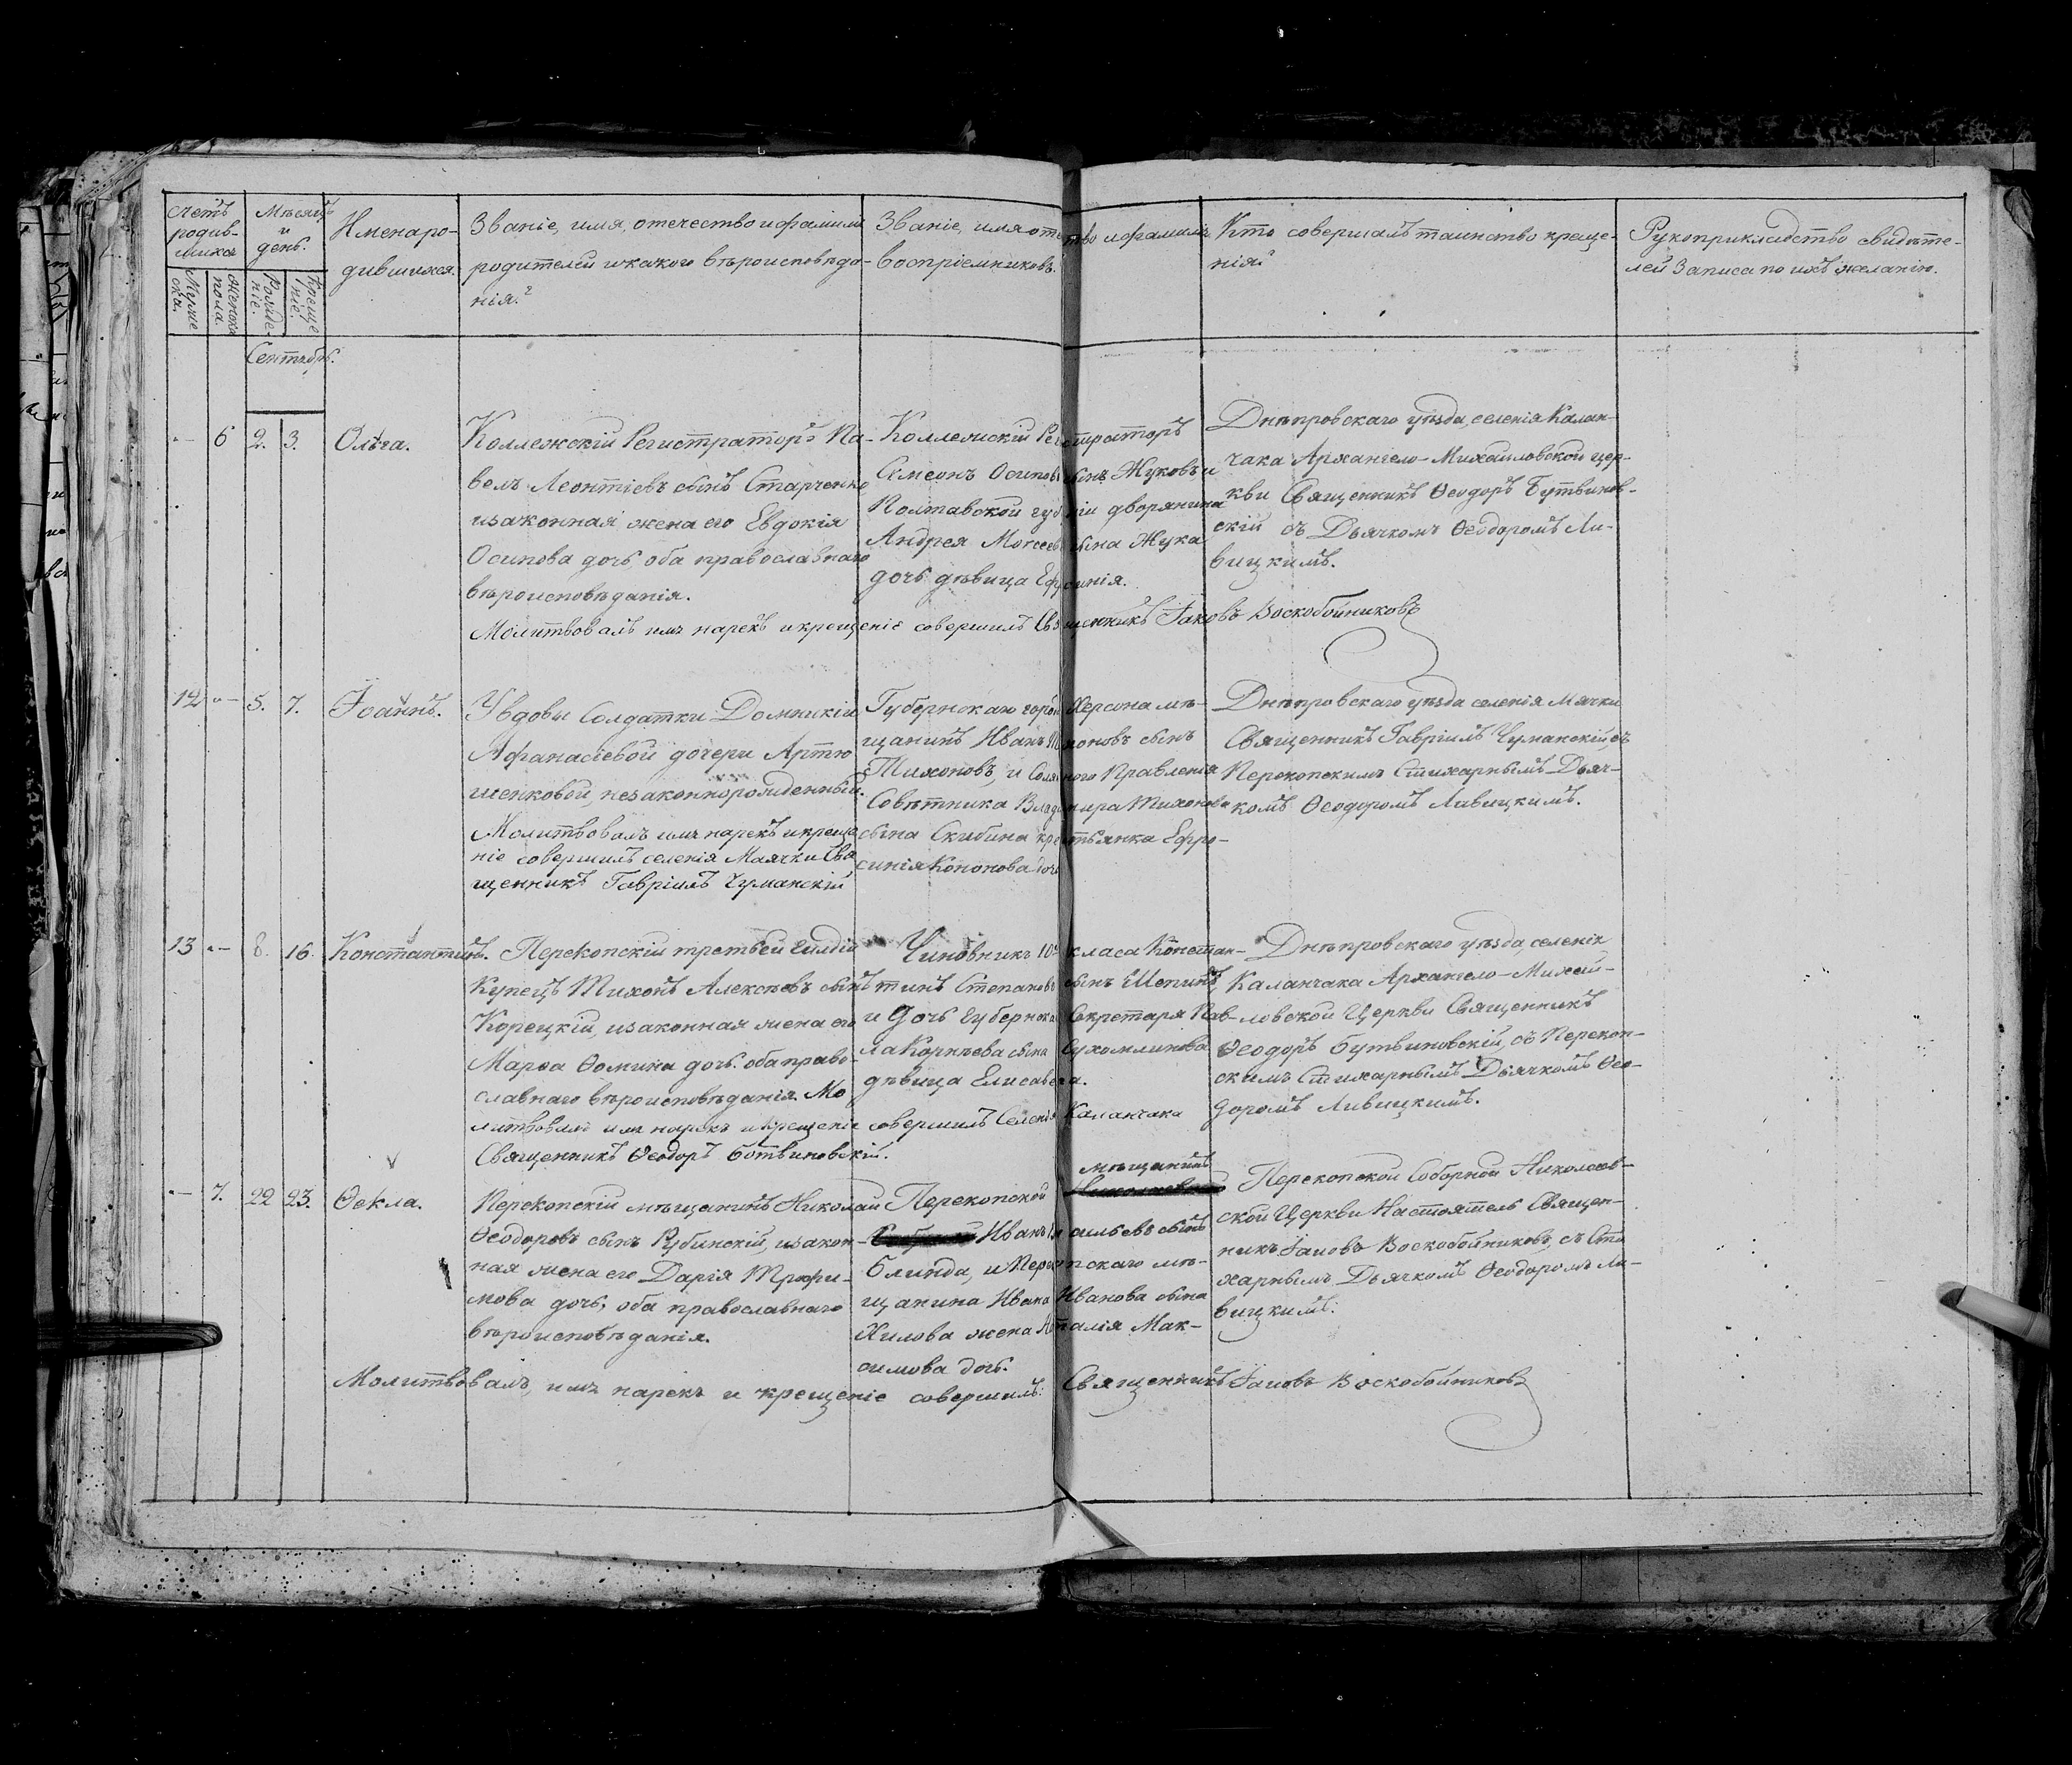 Счетъ
родив-
шихся
Муже
ска.
женска
пола.
Мѣсяцъ
и
день.
Рожде-
ніе.
Креще
ніе.
Имена ро-
дившихся.
Званіе, имя, отечество и фамилія
родителей и какого вѣроисповѣда-
нія?
Званіе, имя отечество и фамилія
воспріемниковъ.
Кто совершалъ таинство креще-
нія?
Рукоприкладство свидѣте-
лей записа по ихъ желанію.
Сентябрь.
6 2. 3. Ольга.
Коллежскій Регистраторъ Па-
велъ Леонтіевъ сынъ Старченко
и законная жена его Евдокія
Осипова дочь, оба православнаго
вѣроисповѣданія.
Коллежскій Регистраторъ
Симеонъ Осиповъ сынъ Жуковъ и
Полтавской губерніи дворянина
Андрея Моисеева сына Жука
дочь дѣвица Ефросинія.
Днѣпровскаго уѣзда, селенія Калан-
чака Архангело-Михаиловской цер-
кви Священникъ Ѳеодоръ Бутвинов-
скій съ Дьячкомъ Ѳеодоромъ Ли-
вицкимъ.
Молитвовалъ имя нарекъ и крещеніе совершилъ Священникъ Іаковъ Воскобойниковъ
12 — 5. 7. Іоаннъ.
У вдовы Солдатки Домникіи
Афанасіевой дочери Артю
шенковой, незаконнорожденный.
Молитвовалъ имя нарекъ и креще
ніе совершилъ селенія Маячки Свя
щенникъ Гавріилъ Чуманскій
Губернскаго города Херсона мѣ-
щанинъ Иванъ сынъ
Тихоновъ, и Солянаго Правленія
Совѣтника Владимира Тихонова
сына Скибина крестьянка Ефро-
синія Кононова дочь
Днѣпровскаго уѣзда селенія Мячки
Священникъ Гавріилъ Чуманскій, съ
Перекопскимъ Стихарнымъ Дьяч-
комъ Ѳеодоромъ Ливицкимъ.
13 — 8. 16. Константинъ.
Перекопскій третьей гильдіи
Купецъ Тихонъ Алексѣевъ сынъ
Корецкій, и законная жена его
Марѳа Ѳомина дочь. оба право-
славнаго вѣроисповѣданія. Мо
литвовалъ имя нарекъ и крещеніе совершилъ Селенія Каланчака
Священникъ Ѳеодоръ Ботвиновскій.
Чиновникъ 10го класа Констан-
тинъ Степановъ сынъ Шепинъ,
и Дочь Губернскаго Секретаря Пав-
ла Корнѣева сына Сухомлинова
дѣвица Елисавета.
Днѣпровскаго уѣзда, селенія
Каланчака Архангело-Михай-
ловской Церкви Священникъ
Ѳеодоръ Бутвиновскій, съ Перекоп-
скимъ Стихарнымъ Дьячкомъ Ѳео-
доромъ Ливицкимъ.
— 7. 22 23. Ѳекла.
Перекопскій мѣщанинъ Николай
Ѳеодоровъ сынъ Рубинскій, и закон-
ная жена его Дарія Трофи-
мова дочь, оба православнаго
вѣроисповѣданія.
Перекопской мѣщанинъ
Иванъ Васильевъ сынъ
Блинда, и Перекопскаго мѣ-
щанина Ивана Иванова сына
Хилова жена Наталія Мак-
симова дочь.
Перекопской Соборной Николаев-
ской Церкви Настоятель Священ-
никъ Іаковъ Воскобойниковъ, съ Сти
харнымъ Дьячкомъ Ѳеодоромъ Ли-
вицкимъ.
Молитвовалъ, имя нарекъ и крещеніе совершилъ: Священникъ Іаковъ Воскобойниковъ